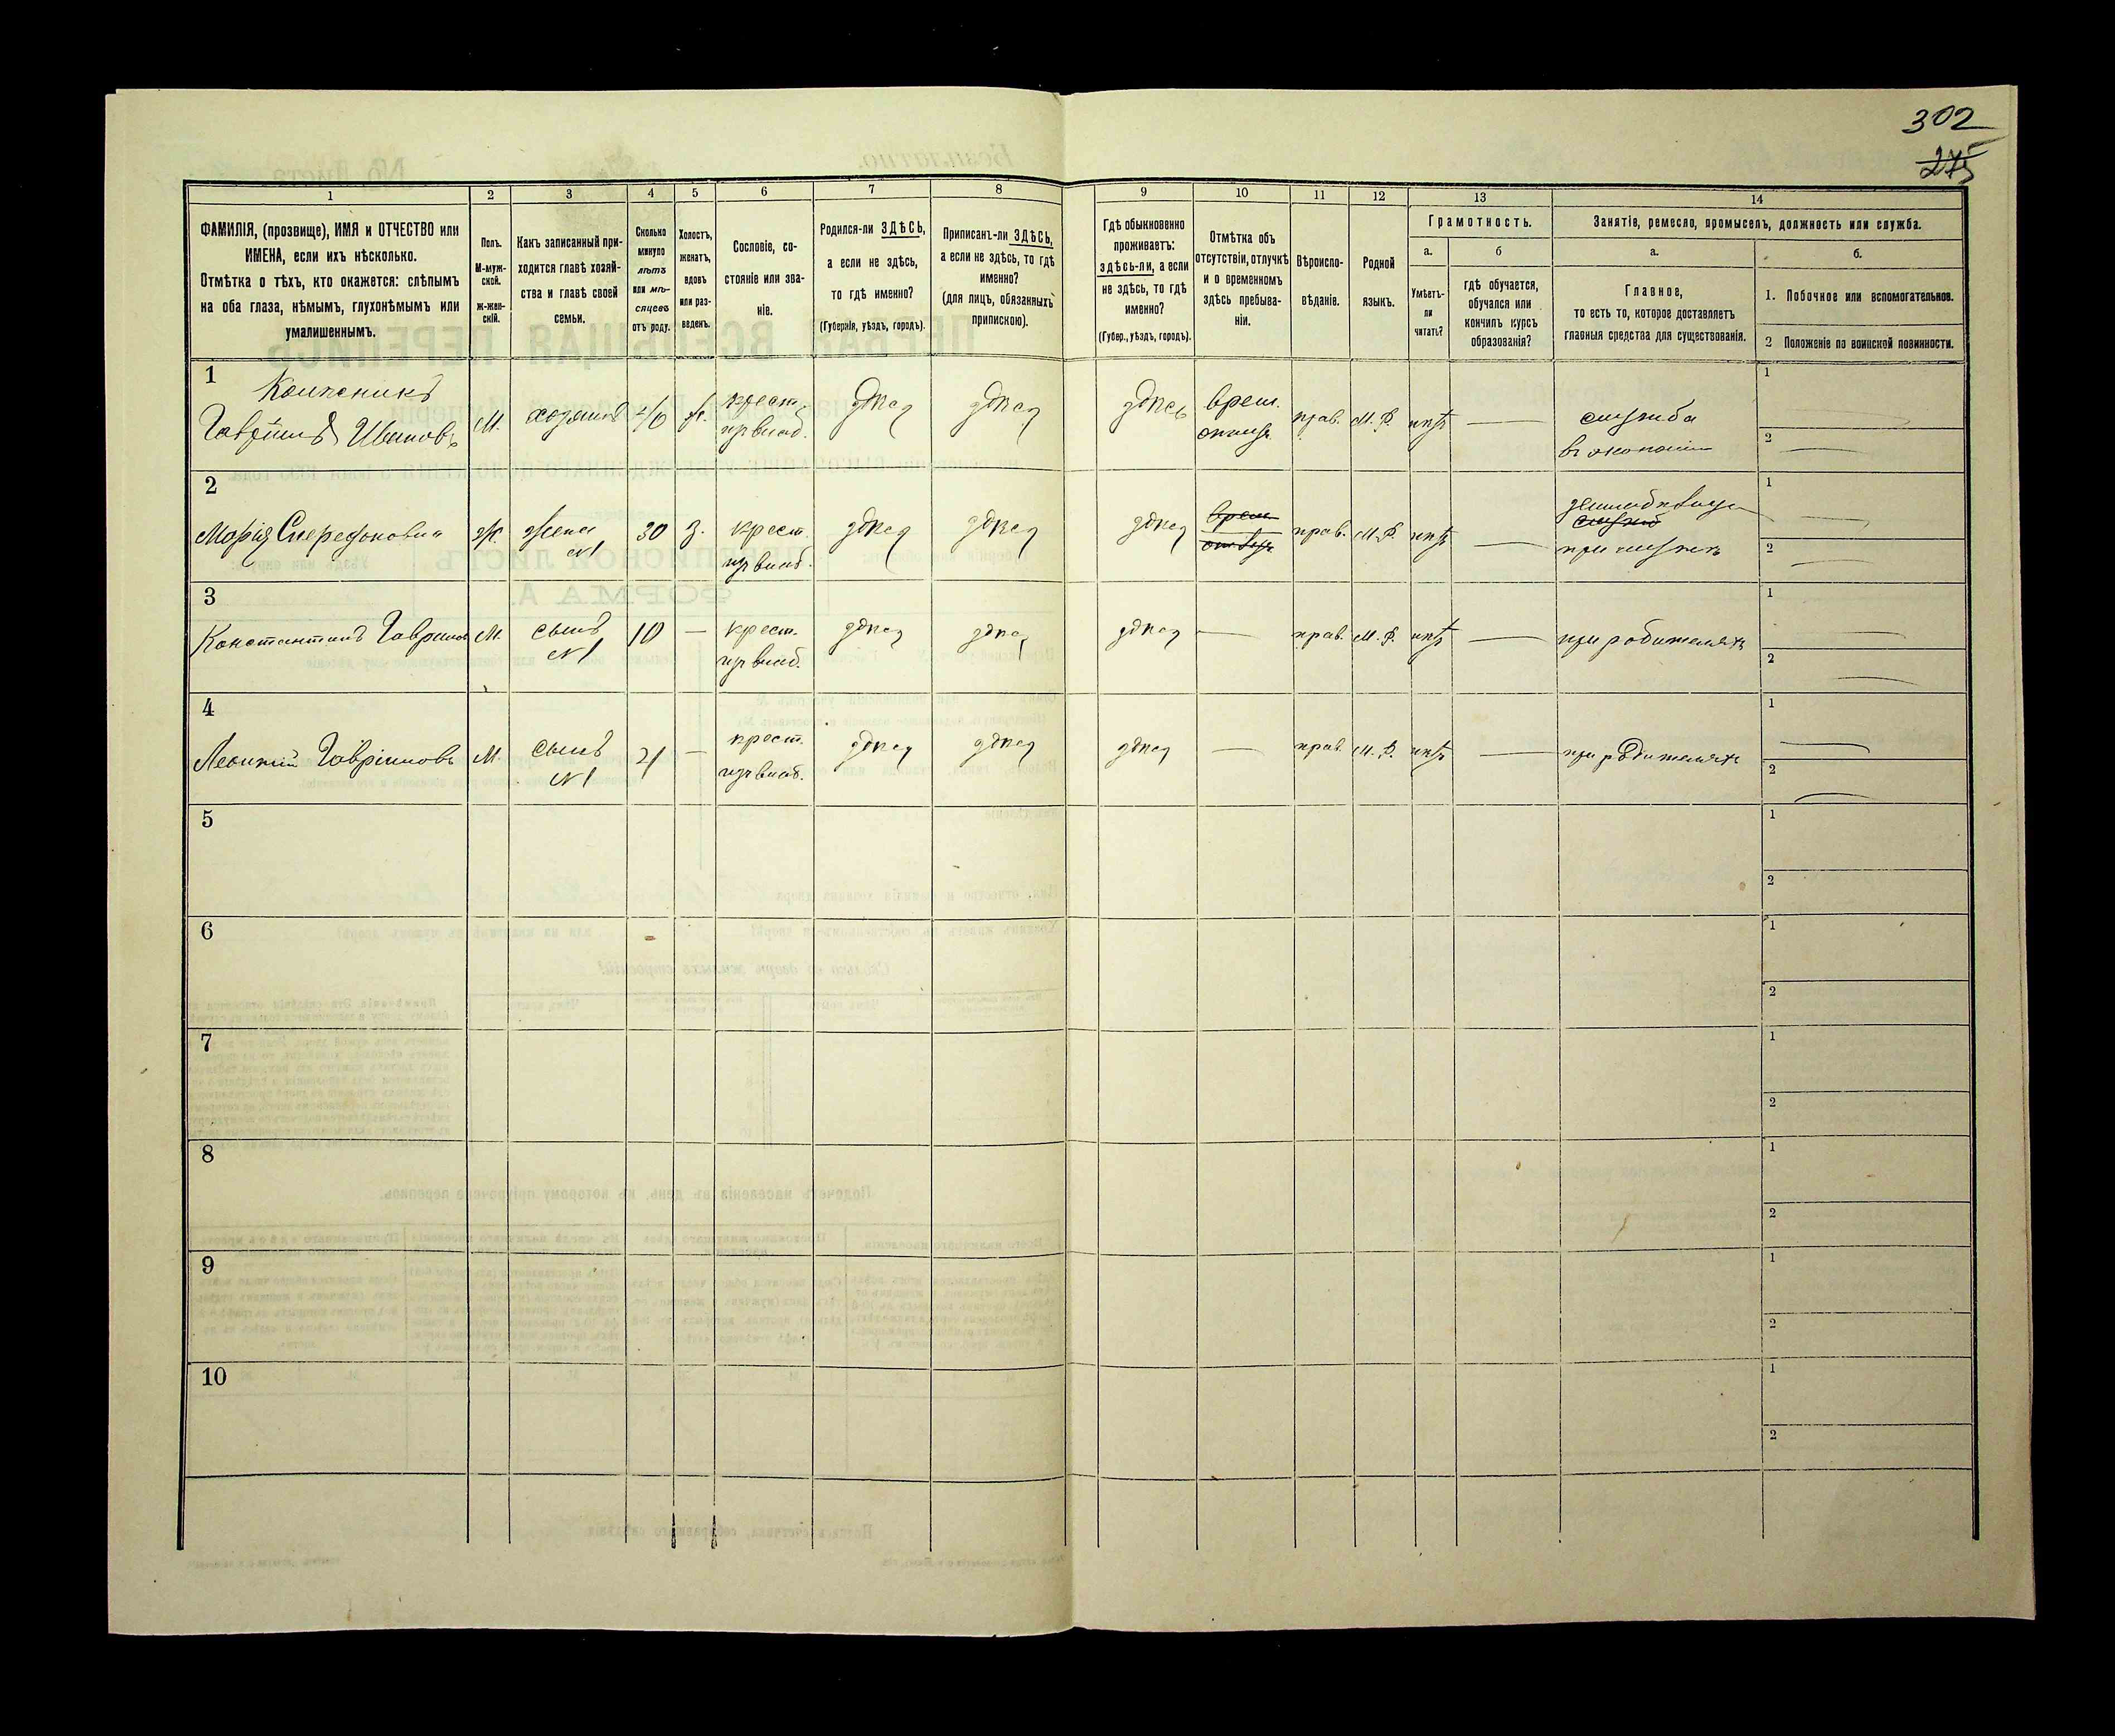 302
275
1
2
3
4
5
6
7
8
9
10
11
12
13
14
ФАМИЛІЯ, (прозвище), ИМЯ и ОТЧЕСТВО или
ИМЕНА, если ихъ нѣсколько.
Отмѣтка о тѣхъ, кто окажется: слѣпымъ
на оба глаза, нѣмымъ, глухонѣмымъ или
умалишеннымъ.
Полъ.
М-муж-
ской.
Ж-жен-
скій.
Какъ записанный при-
ходится главѣ хозяй-
ства и главѣ своей
семьи.
Сколько
минуло
лѣтъ
или мѣ-
сяцевъ
отъ роду.
Холостъ,
женатъ,
вдовъ
или раз-
веденъ.
Сословіе, со-
стояніе или зва-
ніе.
Родился-ли ЗДѢСЬ,
а если не здѣсь,
то гдѣ именно?
(Губернія, уѣздъ, городъ).
Приписанъ-ли ЗДѢСЬ,
а если не здѣсь, то гдѣ
именно?
(для лицъ, обязанныхъ
припискою).
Гдѣ обыкновенно
проживаетъ:
здѣсь-ли, а если
не здѣсь, то гдѣ
именно?
(Губер., уѣздъ, городъ).
Отмѣтка объ
отсутствіи, отлучкѣ
и о временномъ
здѣсь пребыва-
ніи.
Вѣроиспо-
вѣданіе.
Родной
языкъ.
Грамотность.
а.
Умѣетъ-
ли
читать?
б
гдѣ обучается,
обучался или
кончилъ курсъ
образованія?
Занятіе, ремесло, промыселъ, должность или служба.
а.
Главное,
то есть то, которое доставляетъ
главныя средства для существованія.
б.
1. Побочное или вспомогательное.
2 Положеніе по воинской повинности.
1
Гавріилъ Ивановъ
М.
хозяинъ
40
ж.
крест.
здѣсь
здѣсь
здѣсь
врем.
прав.
М. Р.
нѣтъ
служба
въ экономіи
1
2
2
Марія Спередоновна
Ж
жена
N1
30
З.
крест.
здѣсь
здѣсь
здѣсь
прав.
М. Р.
нѣтъ
при мужѣ
1
2
3
Константинъ Гавріиловъ
М.
сынъ
N1
10
—
крест.
здѣсь
здѣсь
здѣсь
—
прав.
М. Р.
нѣтъ
—
при родителяхъ
1
2
4
Леонтій Гавріиловъ
М.
сынъ
N1
—
крест.
здѣсь
здѣсь
здѣсь
—
прав.
М. Р.
нѣтъ
—
при родителяхъ
1
2
5
1
2
6
1
2
7
1
2
8
1
2
9
1
2
10
1
2